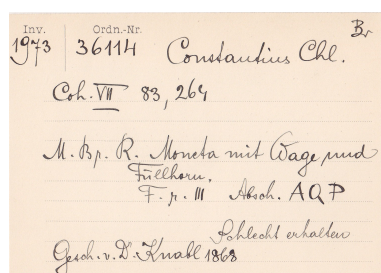 Inv. Ordn.-Nr. Br
1973 36114 Constantius Chl.
Coh. VII 83, 264
M. Br. R. Moneta mit Wage und
Füllhorn.
F. r. III Absch. AQP
Schlecht erhalten
Gesch. v. Dr. Knabl 1868